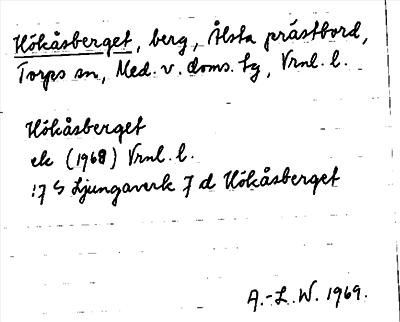 Hökåsberget, berg, Ålsta prästbord,
Torps sn, Med. v. doms. tg, Vrnl. l.
Hökåsberget
ek (1968) Vrnl. l.
17 S Ljungaverk 7 d Hökåsberget
A.-L. W. 1969.